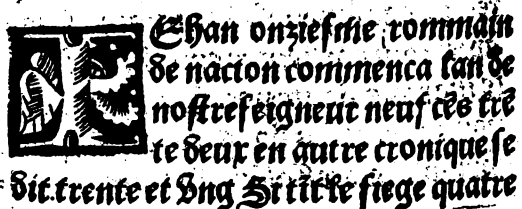 IEhan onziesme rommain
de nacion commenca lan de
nostreseigneur neuf cẽs trẽ
te deux en autre cronique se
dit.trente et vng Si tĩt le siege quatre